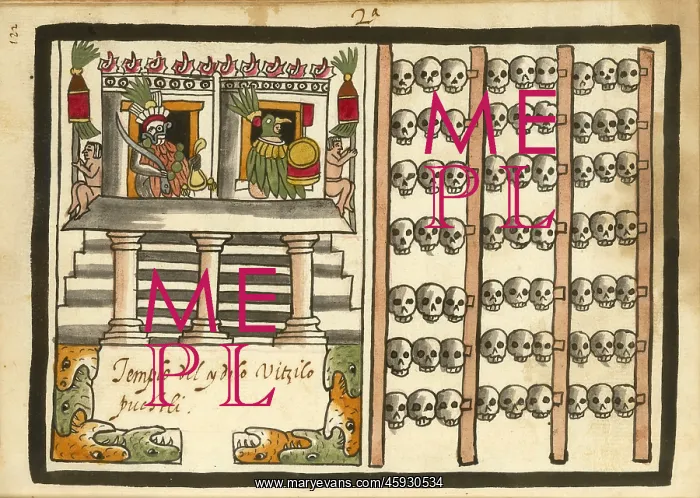 2ª
122
Templo del ydolo Vitzilo
puchtli.
ME
PL
ME
PL
www.maryevans.com/45930534